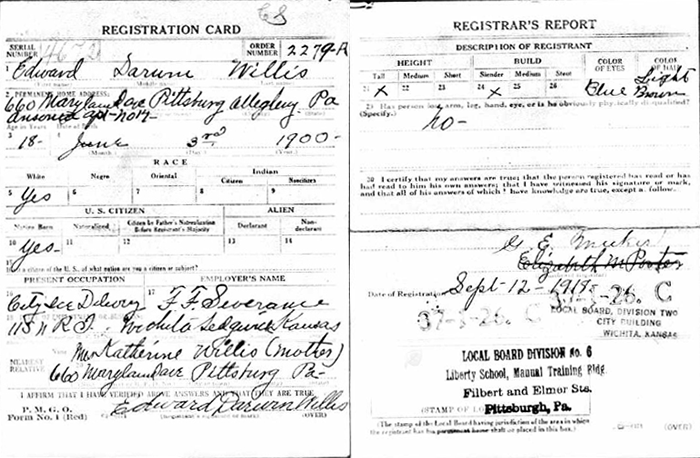 REGISTRATION CARD
SERIAL NUMBER
ORDER NUMBER 2279-A
1 Edward Darwin Willis
2 PERMANENT HOME ADDRESS:
660 Maryland Ave Pittsburg Allegheny Pa
Age in Years Date of Birth
3 18- June 3rd 1900-
(Month.) (Day.) (Year.)
RACE
White Negro Oriental Indian
Citizen Noncitizen
5 Yes 6 7 8 9
U. S. CITIZEN ALIEN
Native Born Naturalized Citizen by Father's Naturalization Before Registrant's Majority Declarant Non-declarant
10 Yes- 11 12 13 14
15 If not a citizen of the U. S., of what nation are you a citizen or subject?
PRESENT OCCUPATION EMPLOYER'S NAME
16 City Ice Delivery 17 F. F. Severance
Wichita Sedgwick Kansas
NEAREST RELATIVE
Mrs Katherine Willis (Mother)
660 Maryland Ave Pittsburg Pa-
I AFFIRM THAT I HAVE VERIFIED ABOVE ANSWERS AND THAT THEY ARE TRUE
P. M. G. O.
Form No. 1 (Red)
Edward Darwin Willis
(OVER)
REGISTRAR'S REPORT
DESCRIPTION OF REGISTRANT
HEIGHT BUILD COLOR OF EYES COLOR OF HAIR
Tall Medium Short Slender Medium Stout
21 X 22 23 24 X 25 26 Blue Light Brown
29 Has person lost arm, leg, hand, eye, or is he obviously physically disqualified?
(Specify.)
no-
30 I certify that my answers are true; that the person registered has read or has
had read to him his own answers; that I have witnessed his signature or mark,
and that all of his answers of which I have knowledge are true, except as follows:
G. E.
Elizabeth M Porter
Date of Registration Sept-12-1918
37-5-26. C
LOCAL BOARD, DIVISION TWO
CITY BUILDING
WICHITA, KANSAS
LOCAL BOARD DIVISION No. 6
Liberty School, Manual Training Bldg.
Filbert and Elmer Sts.
(STAMP OF LOCAL
Pittsburgh, Pa.
(The stamp of the Local Board having jurisdiction of the area in which
the registrant has his permanent home shall be placed in this box.)
(OVER)